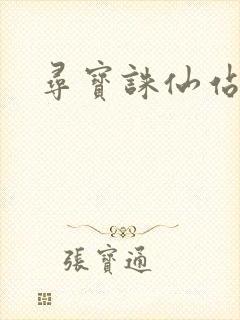 尋寶誅仙佔
張寶通